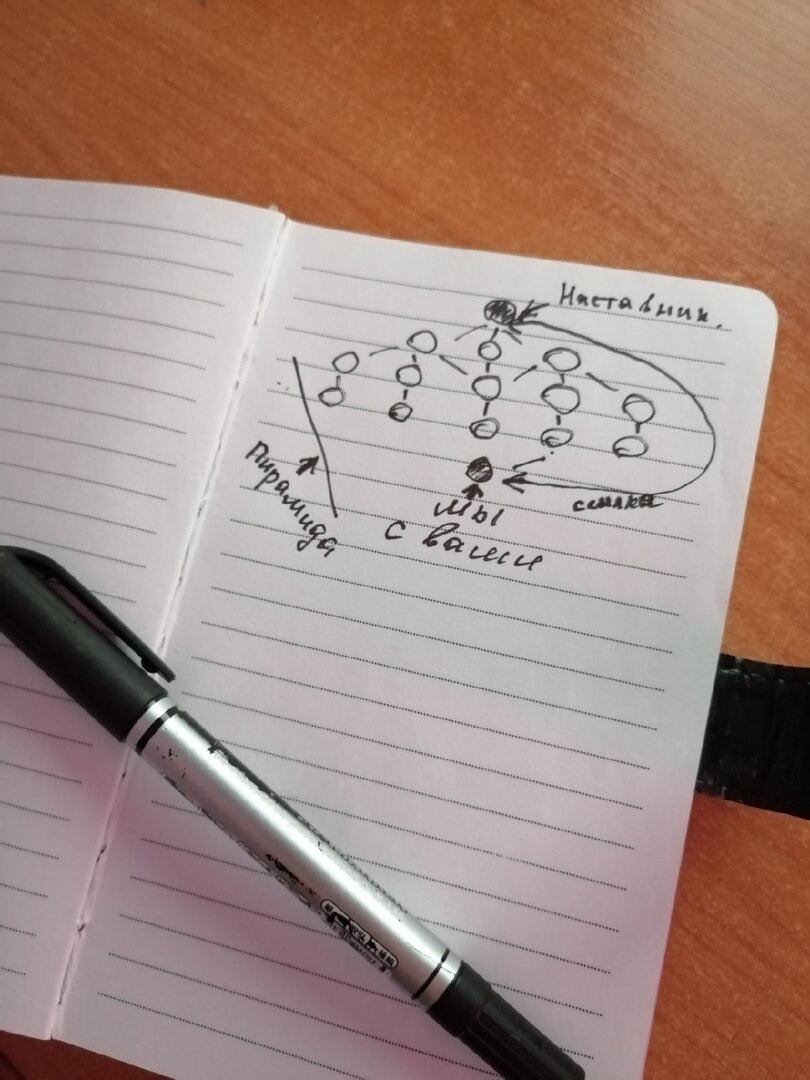 Наставник.
Пирамида
ссылка
мы
с вами